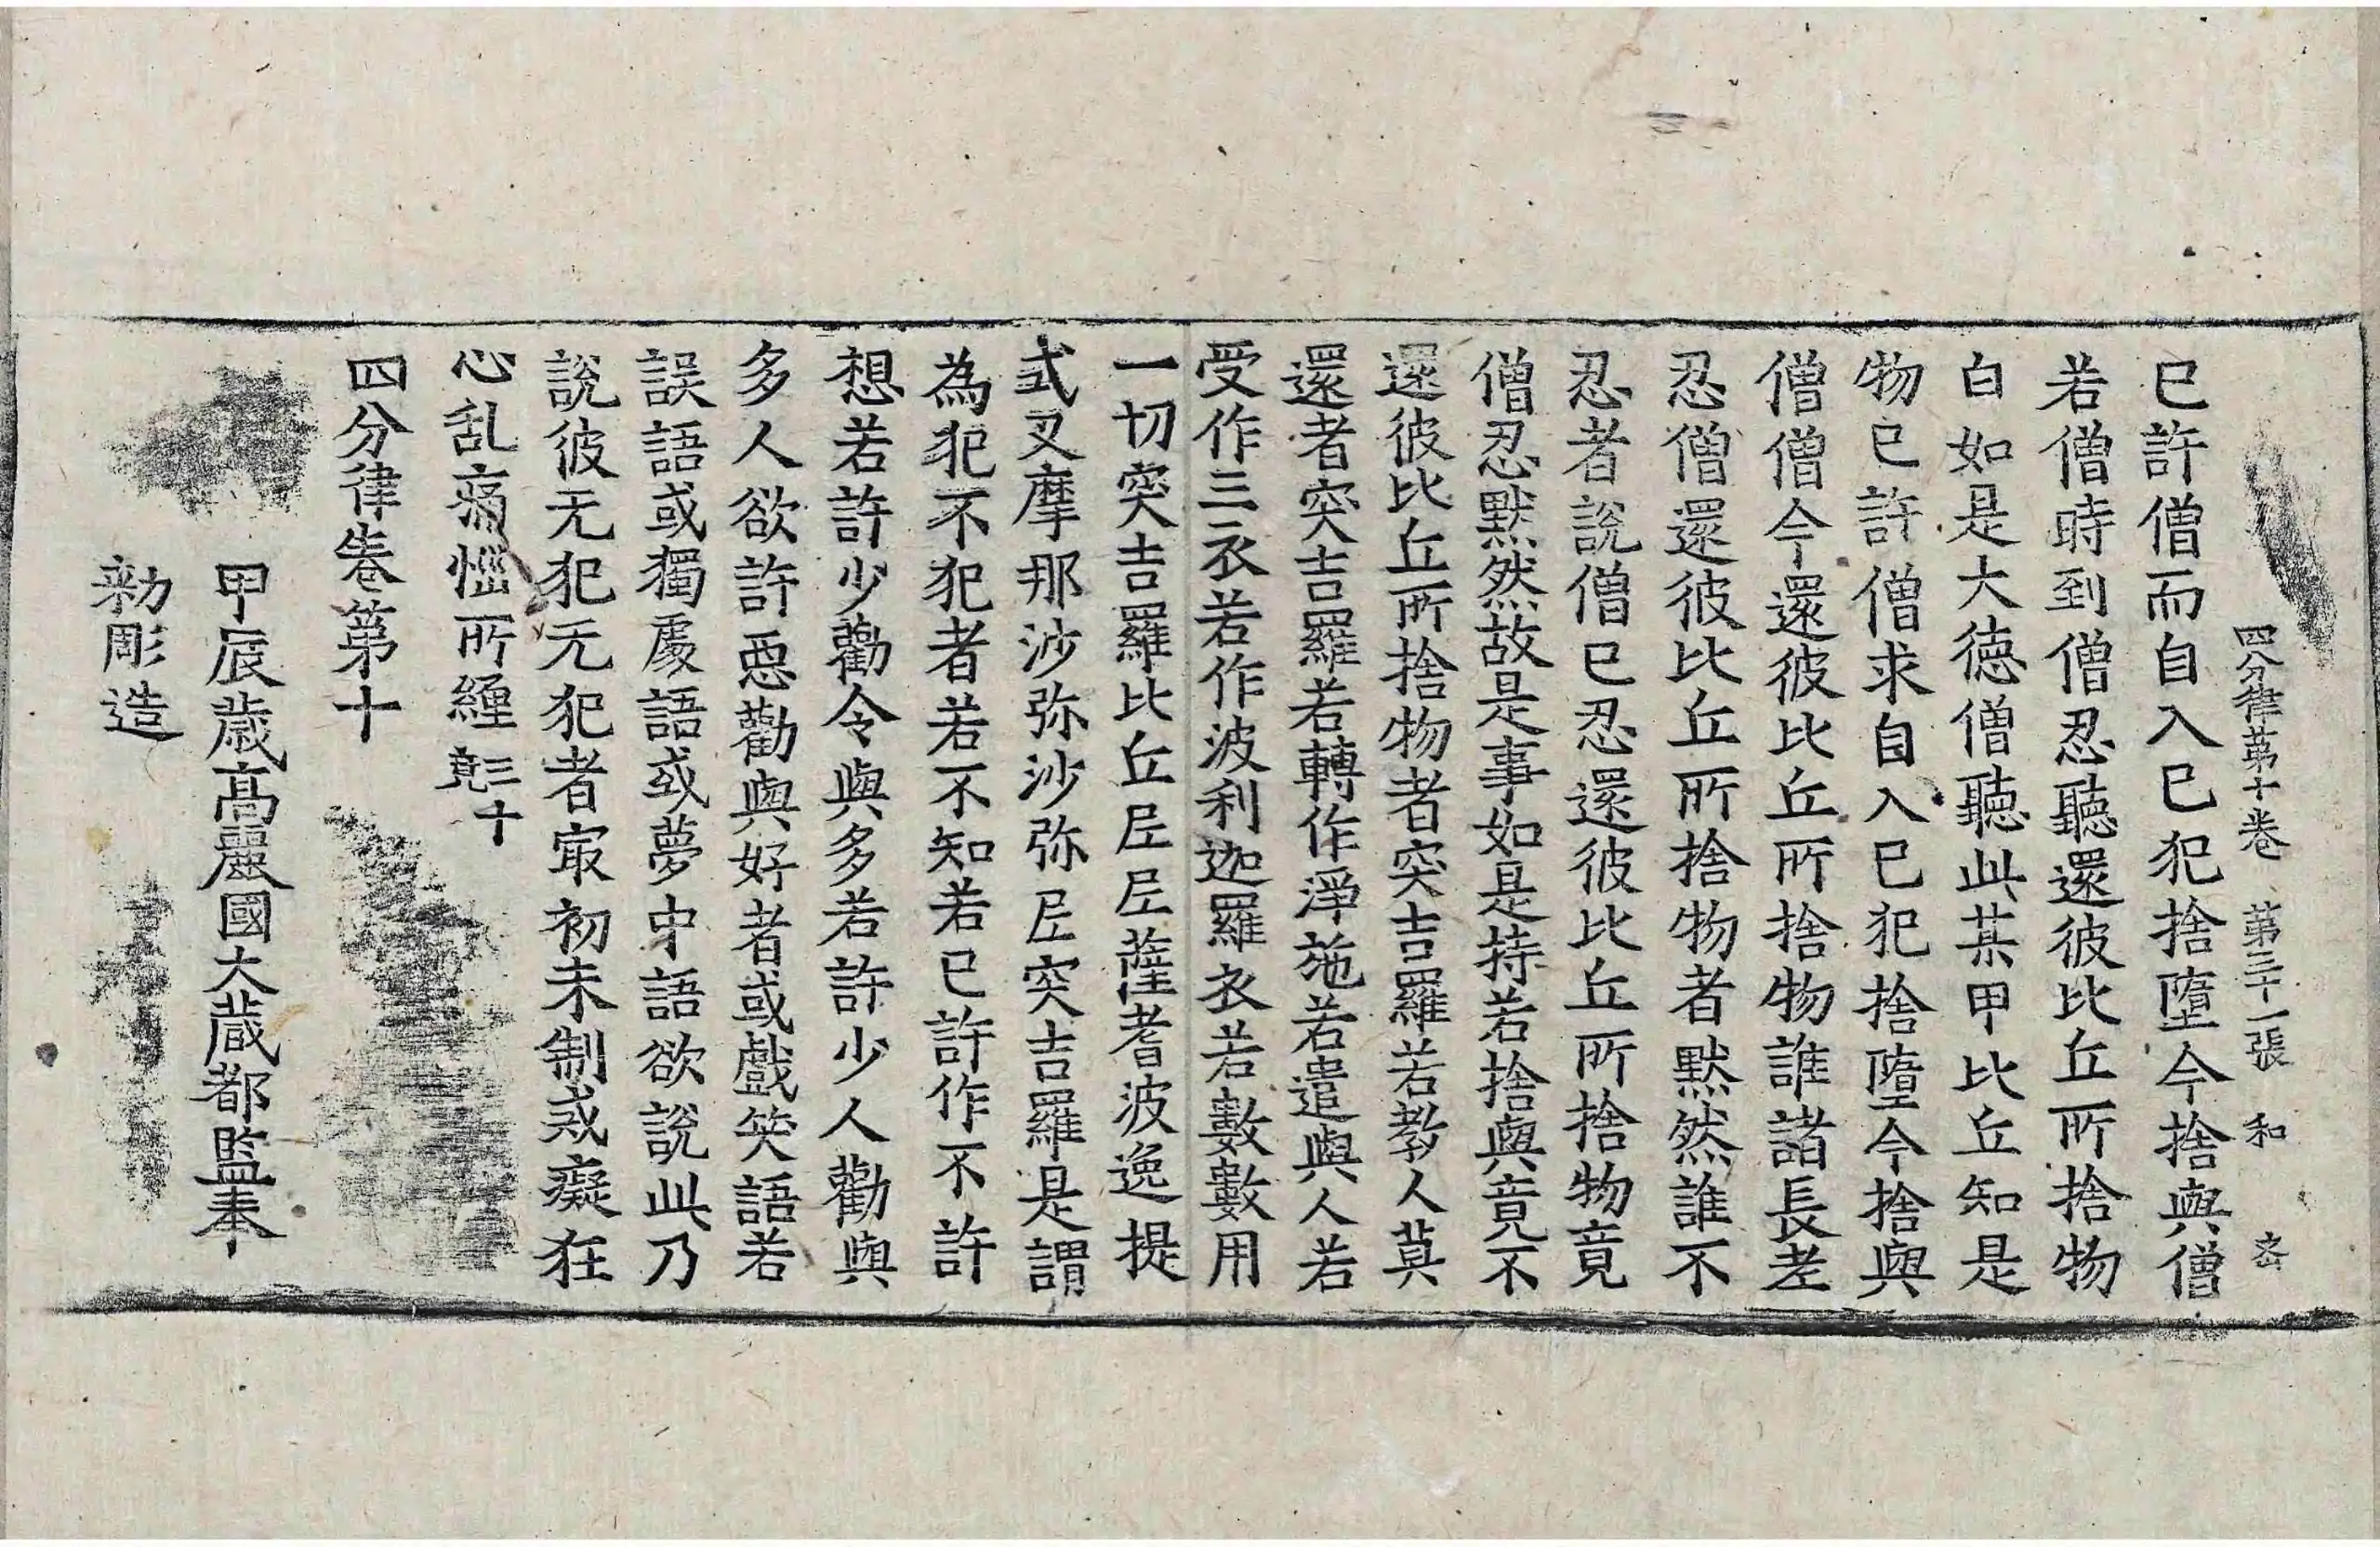 四分律第十卷　第三十一張　和
已許僧而自入已犯捨墮今捨與僧
若僧時到僧忍聽還彼比丘所捨物
白如是大德僧聽此某甲比丘知是
物已許僧求自入已犯捨墮今捨與
僧僧今還彼比丘所捨物誰諸長老
忍僧還彼比丘所捨物者默然誰不
忍者說僧已忍還彼比丘所捨物竟
僧忍默然故是事如是持若捨與竟不
還彼比丘所捨物者突吉羅若教人莫
還者突吉羅若轉作淨施若遣與人若
受作三衣若作波利迦羅衣若數數用
一切突吉羅比丘尼尼薩耆波逸提
式叉摩那沙弥沙弥尼突吉羅是謂
為犯不犯者若不知若已許作不許
想若許少勸令與多若許少人勸與
多人欲許惡勸與好者或戲笑語若
誤語或獨處語或夢中語欲說此乃
說彼无犯无犯者㝡初未制戒癡狂
心乱痛惱所纏三十竟
四分律卷第十
甲辰歲高麗國大藏都監奉
勑彫造